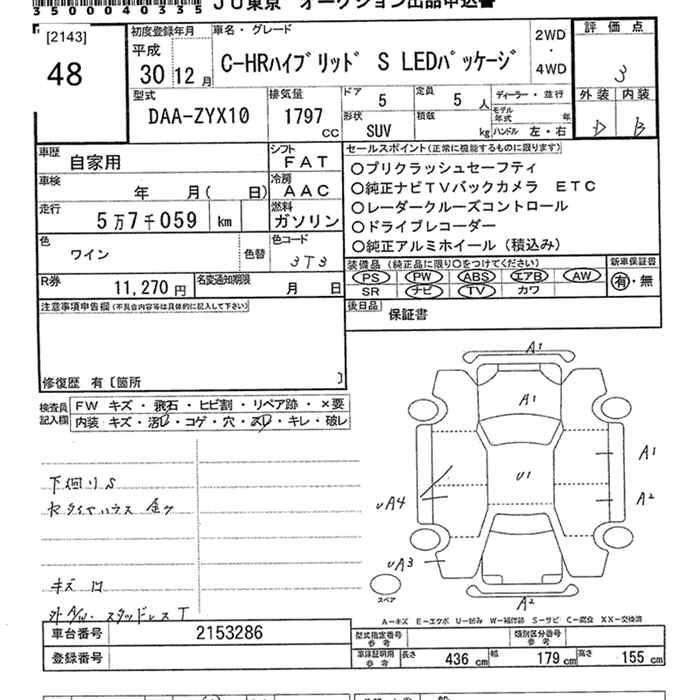 35000040335 JU東京 オークション出品申込書
[2143]
48
初度登録年月
平成
30 12月
車名・グレード
C-HRハイブリッド S LEDパッケージ
2WD
・
4WD
評価点
3
外装 内装
D B
型式
DAA-ZYX10
排気量
1797
CC
ドア
5
定員
5 人
ディーラー・並行
形状
SUV
積載
kg
モデル年式 年
ハンドル 左・右
車歴
自家用
シフト
FAT
車検
年 月( 日)
冷房
AAC
走行
5万7千059 km
燃料
ガソリン
色
ワイン
色替
色コード
3T3
R券
11,270円
名変通知期限
月 日
セールスポイント(正常に機能するものに限ります)
○プリクラッシュセーフティ
○純正ナビTVバックカメラ ETC
○レーダークルーズコントロール
○ドライブレコーダー
○純正アルミホイール(積込み)
装備品(純正品に限り○をつけてください)
PS PW ABS エアB AW
SR ナビ TV カワ
新車保証書
有・無
後日品
保証書
注意事項申告欄(不具合内容等は具体的に記入して下さい)
修復歴 有〔箇所 〕
検査員
記入欄
FW キズ・飛石・ヒビ割・リペア跡・×要
内装 キズ・汚レ・コゲ・穴・スレ・キレ・破レ
下回りS
キズ
A1
A1
U1
A1
A2
UA4
UA3
A2
スペア
A-キズ E-エクボ U-凹み W-補修跡 S-サビ C-腐食 XX-交換済
車台番号
2153286
登録番号
型式指定番号
参考
類別区分番号
参考
車庫証明用
参考
長さ 436cm 幅 179cm 高さ 155cm